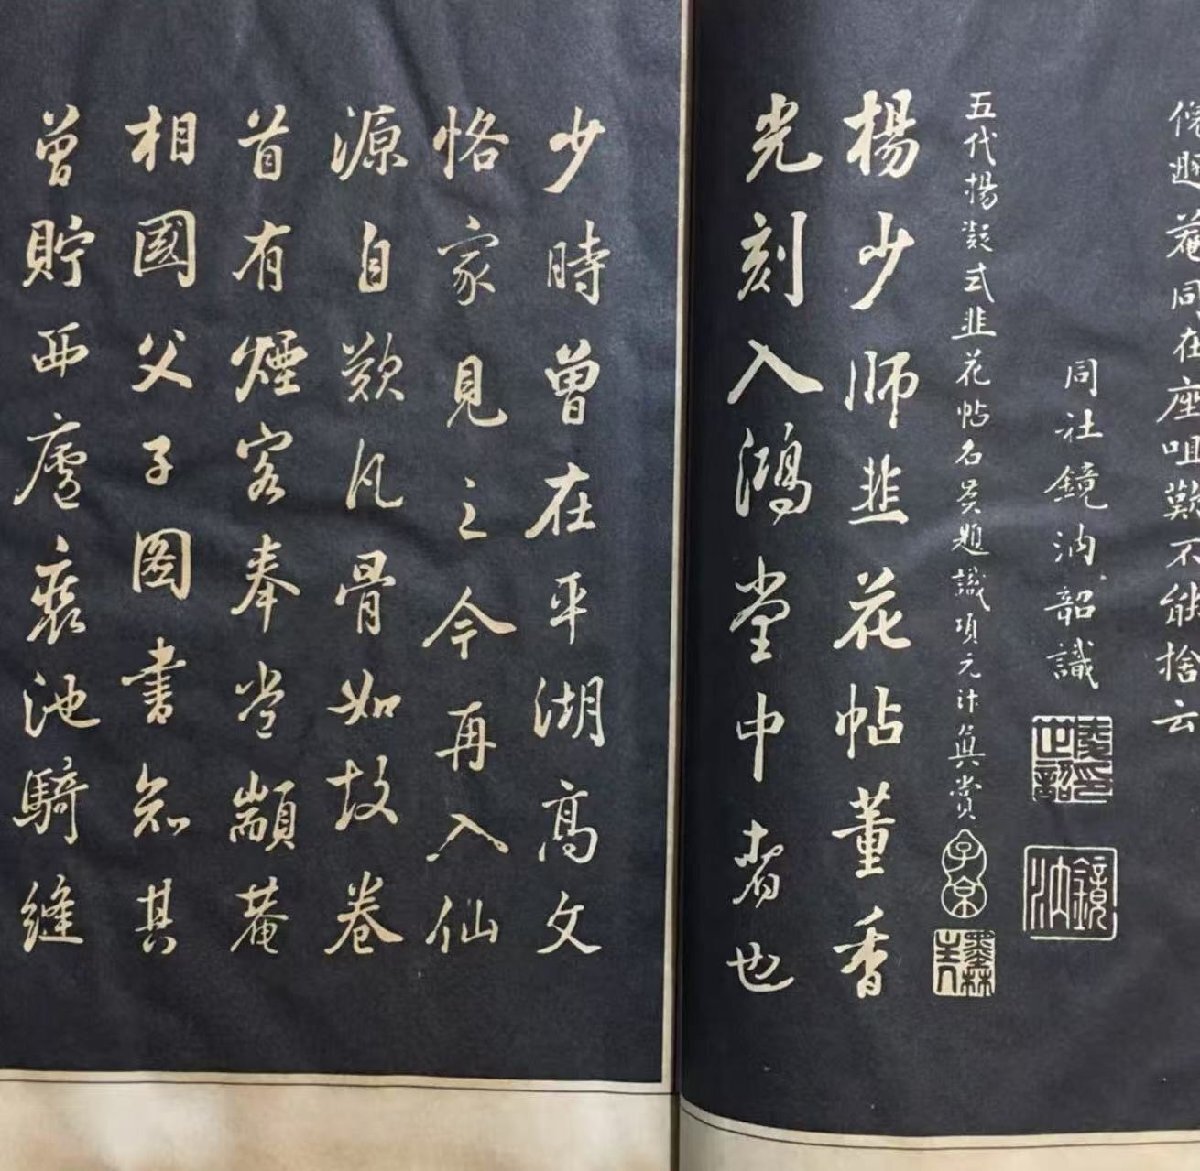 菴同在座咀歎不能捨云
同社鏡汭韶識
凌世韶印
鏡汭
五代楊凝式韭花帖名題識項元汴真賞
子京
墨林主人
楊少師韭花帖董香
光刻入鴻堂中者也
少時曾在平湖高文
恪家見之今再入仙
源自歎凡骨如故卷
首有煙客奉常顓菴
相國父子圖書知其
曾貯西廬池騎縫